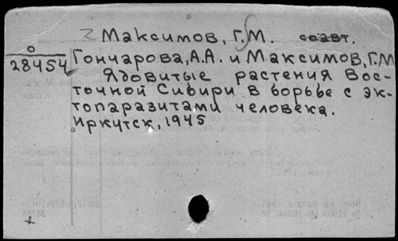 Максимов, Г.М. соавт.
о
28454
Гончарова, А.А. и Максимов, Г.М
Ядовитые растения Вос-
точной Сибири в борьбе с эк-
топаразитами человека.
Иркутск, 1945